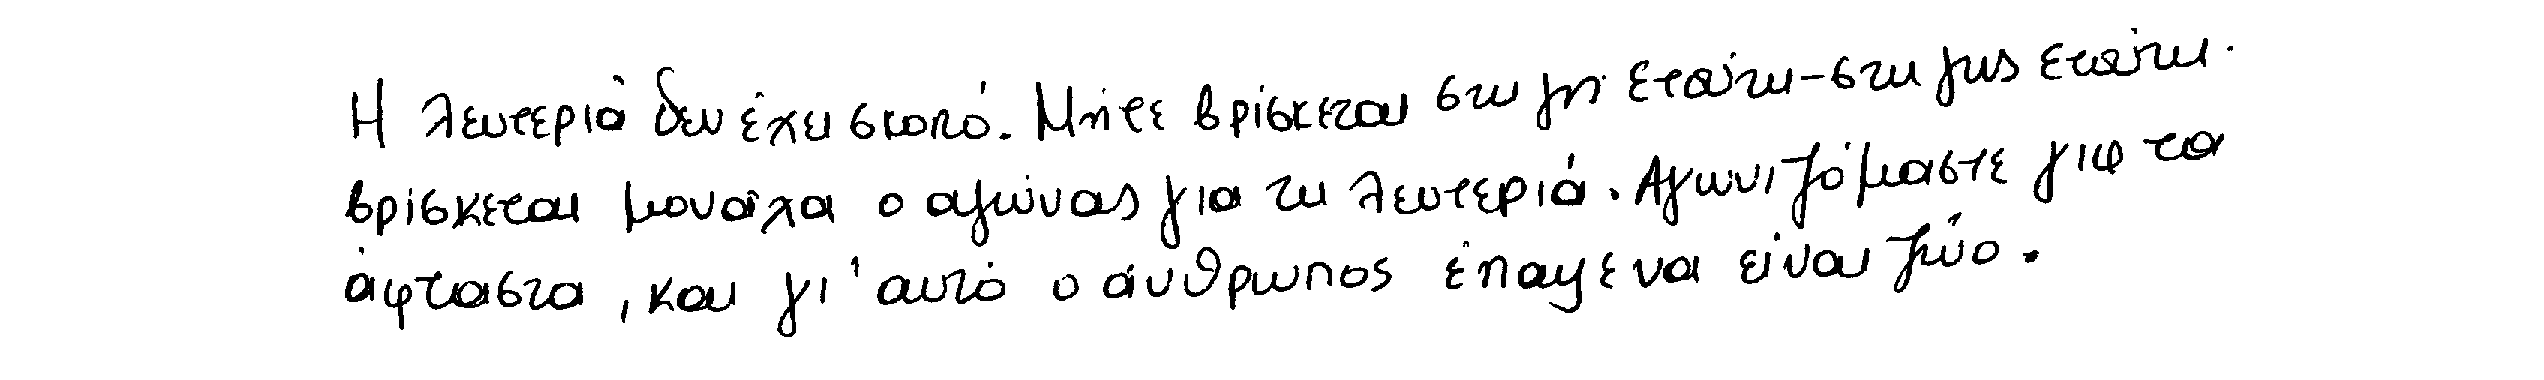 Η λευτεριά δεν έχει σκοπό. Μήτε βρίσκεται στη γη· ετούτη - στη γης ετούτη.
βρίσκεται μονάχα ο αγώνας για τη λευτεριά. Αγωνιζόμαστε για τα
άφταστα, και γι' αυτό ο άνθρωπος έπαψε να είναι ζώο.